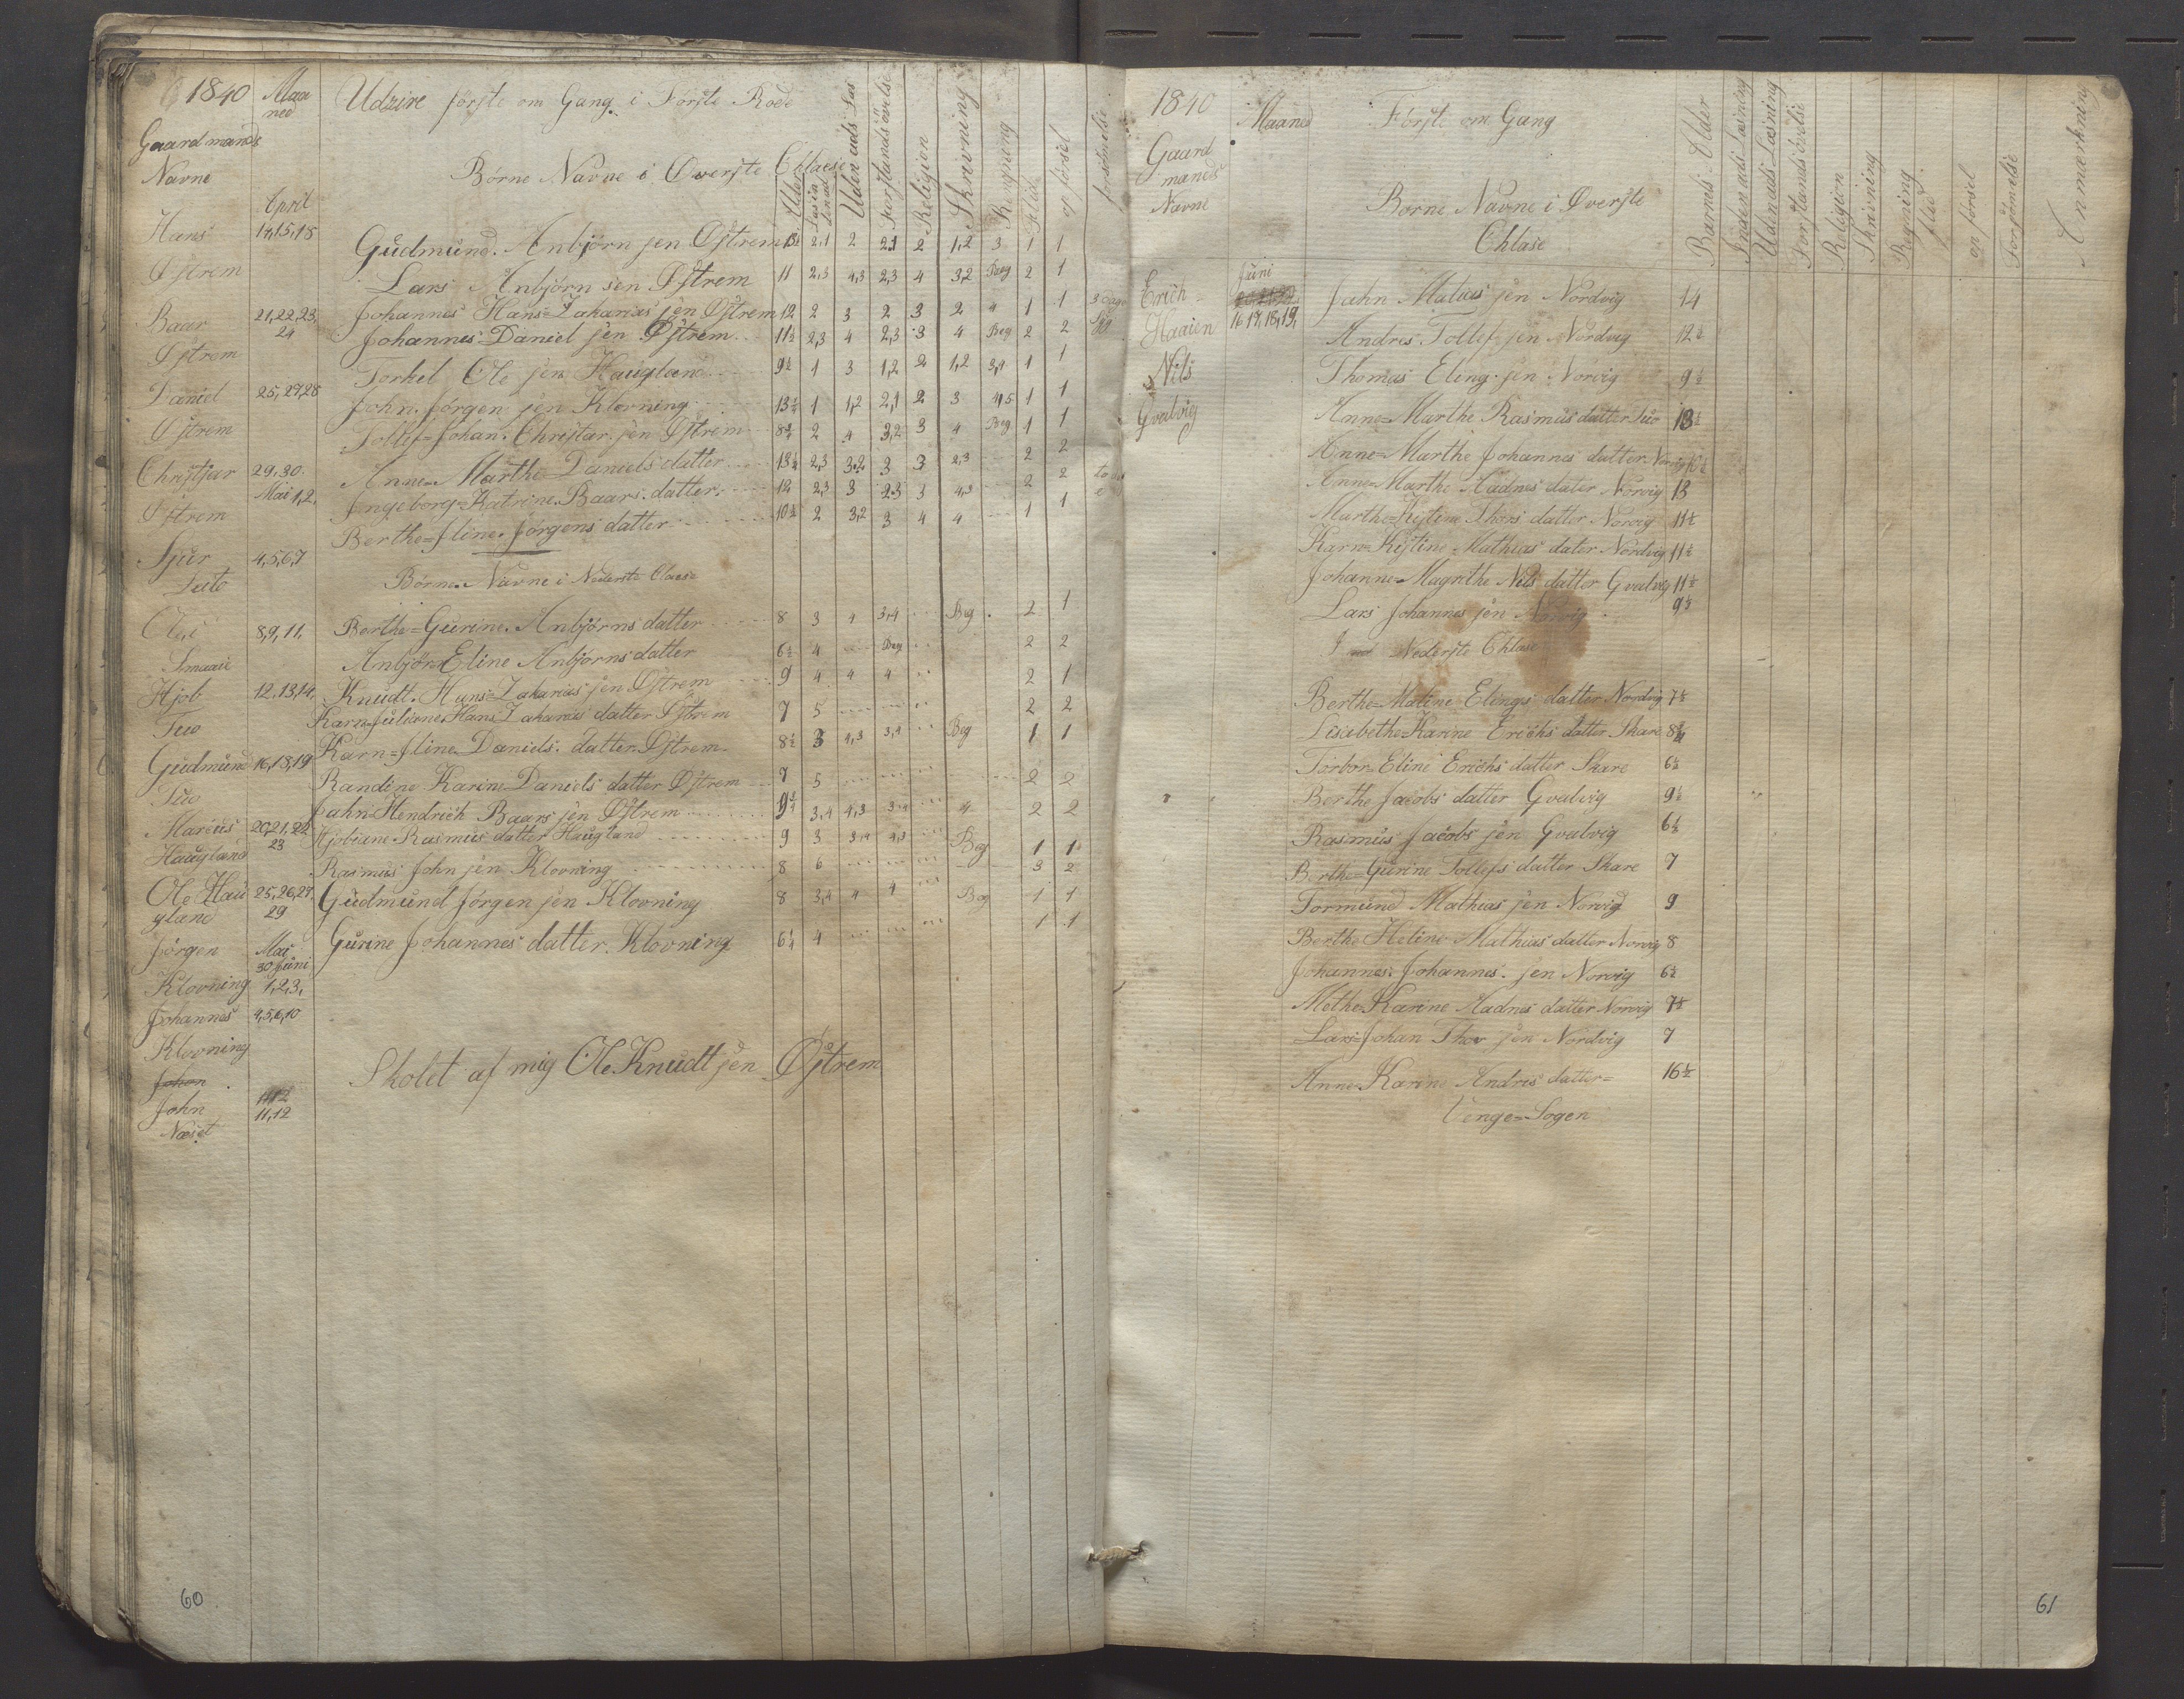 1840 Maaned Udzire förste om Gang i Förste Rode
Gaardmands Navne
Börne Navne i Överste Chlasse
Alder
Uden ads Læs
Forstands övelse
Religion
Skrivning
Regning
Flid
opförsel
forsömelse
April
Hans 14,15,18 Gudmund. Anbjörn sen Östrem 13½ 2,1 2 2,1 2 1,2 3 1 1
Östrem Lars Anbjörn sen Östrem 11 2,3 4,3 2,3 4 3,2 Beg 2 1
Baar 21,22,23, 24 Johannes Hans=Zakarias sen Östrem 12 2 3 2 3 2 4 1 1
Östrem Johannes Daniel sen Östrem 11½ 2,3 4 2,3 3 4 Beg 2 2
Torkel Ole sen Haugland 9½ 1 3 1,2 2 1,2 3,4 1 1
Daniel 25,27,28 John. Jörgen sen Klovning 13½ 1 1,2 2,1 2 3 4,5 1 1
Östrem Tollef=Johan. Christar. sen Östrem 8¾ 2 4 3,2 3 4 Beg 1 1
Christjar 29,30. Anne=Marthe Daniels datter 13½ 2,3 3,2 3 3 2,3 2 2
Östrem Mai 1,2, Ingeborg=Katrine Baars. datter 12 2,3 3 2,3 3 4,3 2 2
Berthe=Iline. Jörgens datter 10½ 2 3,2 3 4 4 1 1
Sjur 4,5,6,7
Börne. Navne i Nederste Classe
Ole 8,9,11, Berthe=Gurine. Anbjörns datter 8 3 4 3,4 Beg. 2 1
Smaaie Anbjör Eline Anbjörns datter 6½ 4 Beg 2 2
Hjob 12,13,14, Knudt. Hans=Zakarias sen Östrem 9 4 4 4 2 1
Tuo Karn=Juliane Hans Zakarias datter Östrem 7 5 2 2
Karn=Iline Daniels. datter Östrem 8½ 3 4,3 3,4 Beg 1 1
Gudmund 16,18,19 Randine Karine Daniels datter Östrem 7 5 2 2
Tuo Jahn=Hendrich Baars sen Östrem 9¾ 3,4 4,3 3,4 4 2 2
Marcus 20,21,22 23 Hjobiane Rasmus datter Haugland 9 3 3,4 4,3 Beg 1 1
Haugland Rasmus John sen Klovning 8 6 3 2
Ole Haugland 25,26,27, 29 Gudmund Jörgen sen Klovning 8 3,4 4 4 Beg 1 1
Jörgen Mai 30 Juni Gurine Johannes datter. Klovning 6¼ 4 1 1
Klovning 1,2,3,
Johannes 4,5,6,10
Klovning
Skolet af mig Ole Knudt sen Östrem
Johan
John 11,12
Næset 11,12
60
1840 Maaned Förste om Gang
Gaardmands Navne
Börne Navne i Överste Chlase
Barnets Alder
Inden ads Læsning
Uden ads Læsning
Forstands övelse
Religion
Skrivning
Regning
flid
opförsel
Forsömelse
Anmærkning
Juni
Erich= Jahn Matias sen Nordvig 14
Haaien 16 17,18,19, Andres Tollef sen Nordvig 12½
Nils Thomas Eling. sen Norvig 9½
Gvalvig Anne=Marthe Rasmus datter Tuo 13½
Anne=Marthe Johannes datter Norvig
Anne=Marthe Aadnes dater Norvig 13
Marthe=Kistine Thors datter Norvig 11½
Karn=Kistine Mathias dater Nordvig 11½
Johanne=Magrethe Nils datter Gvalvig 11½
Lars Johannes sen Norvig 9½
I Nederste Chlase
Berthe=Matine Elings datter Nordvig 7½
Lisabethe=Karine Erichs datter Skare 8¾
Torbor=Eline Erichs datter Skare 6½
Berthe Jacobs datter Gvalvig 9½
Rasmus Jacobs sen Gvalvig 6½
Berthe=Gurine Tollefs datter Skare 7
Tormund Mathias sen Norvig 9
Berthe Heline Mathias datter Norvig 8
Johannes. Johannes. sen Norvig 6½
Methe Karine Aadnes datter Norvig 7½
Lars=Johan Thor sen Nordvig 7
Anne Karine Andris datter= 16½
Venge=Sogen
61